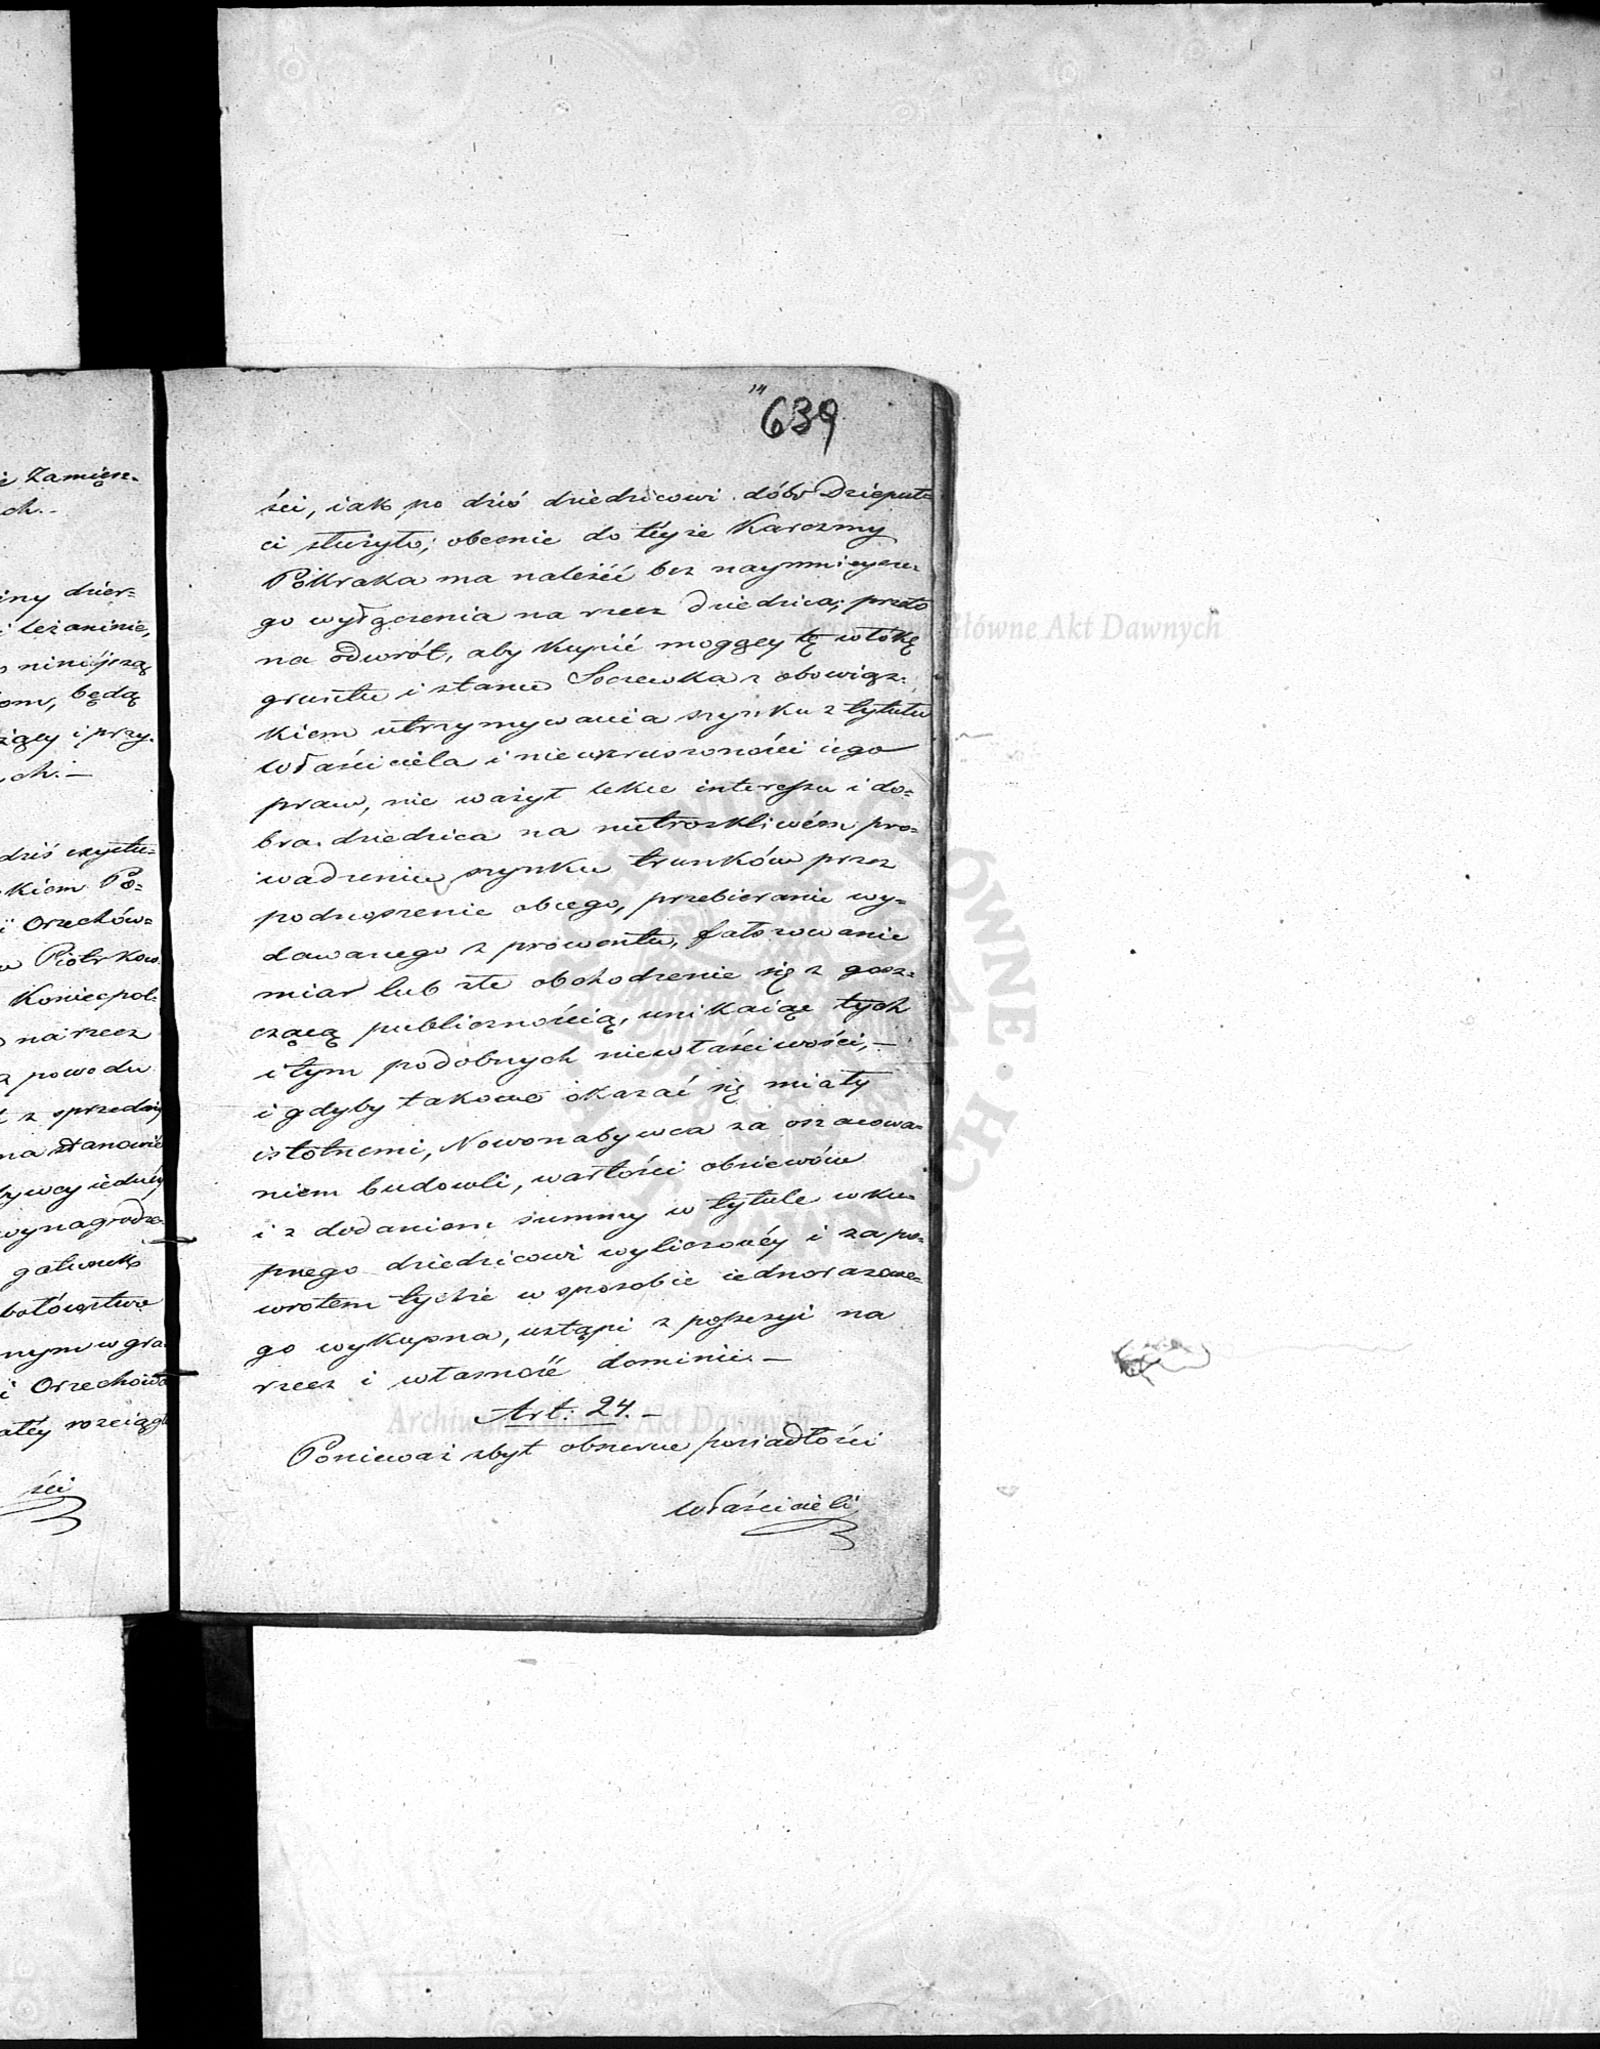 i Zamięsz-
ch.-
iny dzier=
i leżaninie,
ninieyszą
om, będą
iący i przy.
ch. —
dziś wystu=
kiem Po=
i Orzechów=
w Piotrkow.
Koniecpol-
na rzecz
z powodu
z sprzedaży
ma stanowić
bywcy iednéy
wynagrodze-
gatunek
botówstwa
nym w gra-
i Orzechowa
ałéy rozciągło
ści
639
ści, iak po dziś dziedzicowi dóbr Dzieput=
ci służyło; obecnie do téyże Karczmy
Pokraka ma należéć bez naymnieysze-
go wyłączenia na rzecz dziedzica; przeto
na odwrót, aby kupić mogący tę włókę
gruntu i stanu Soczewka z obowiąz-
kiem utrzymywania szynku z tytułu
właściciela i niewzruszoności iego
praw, nie ważył lekce interessu i do=
bra dziedzica na nietroskliwém pro=
wadzeniu szynku trunków przez
podnoszenie obcego, przebieranie wy=
dawanego z prowentu, fałszowanie
miar lub złe obchodzenie się z gosz=
czącą publicznością, unikaiąc tych
i tym podobnych niewłaściwości, —
i gdyby takowe okazać się miały
istotnemi, Nowonabywca za oszacowa=
niem budowli, wartości obsiewów
i z dodaniem summy w tytule wku=
pnego dziedzicowi wyliczonéy i za po=
wrotem tychże w sposobie iednorazowe=
go wykupna, ustąpi z possessyi na
rzecz i własność dominii. —
Art: 24. —
Ponieważ zbyt obszerne posiadłości
właścicieli
Archiwum Główne Akt Dawnych
Archiwum Główne Akt Dawnych
ARCHIWUM GŁÓWNE AKT DAWNYCH